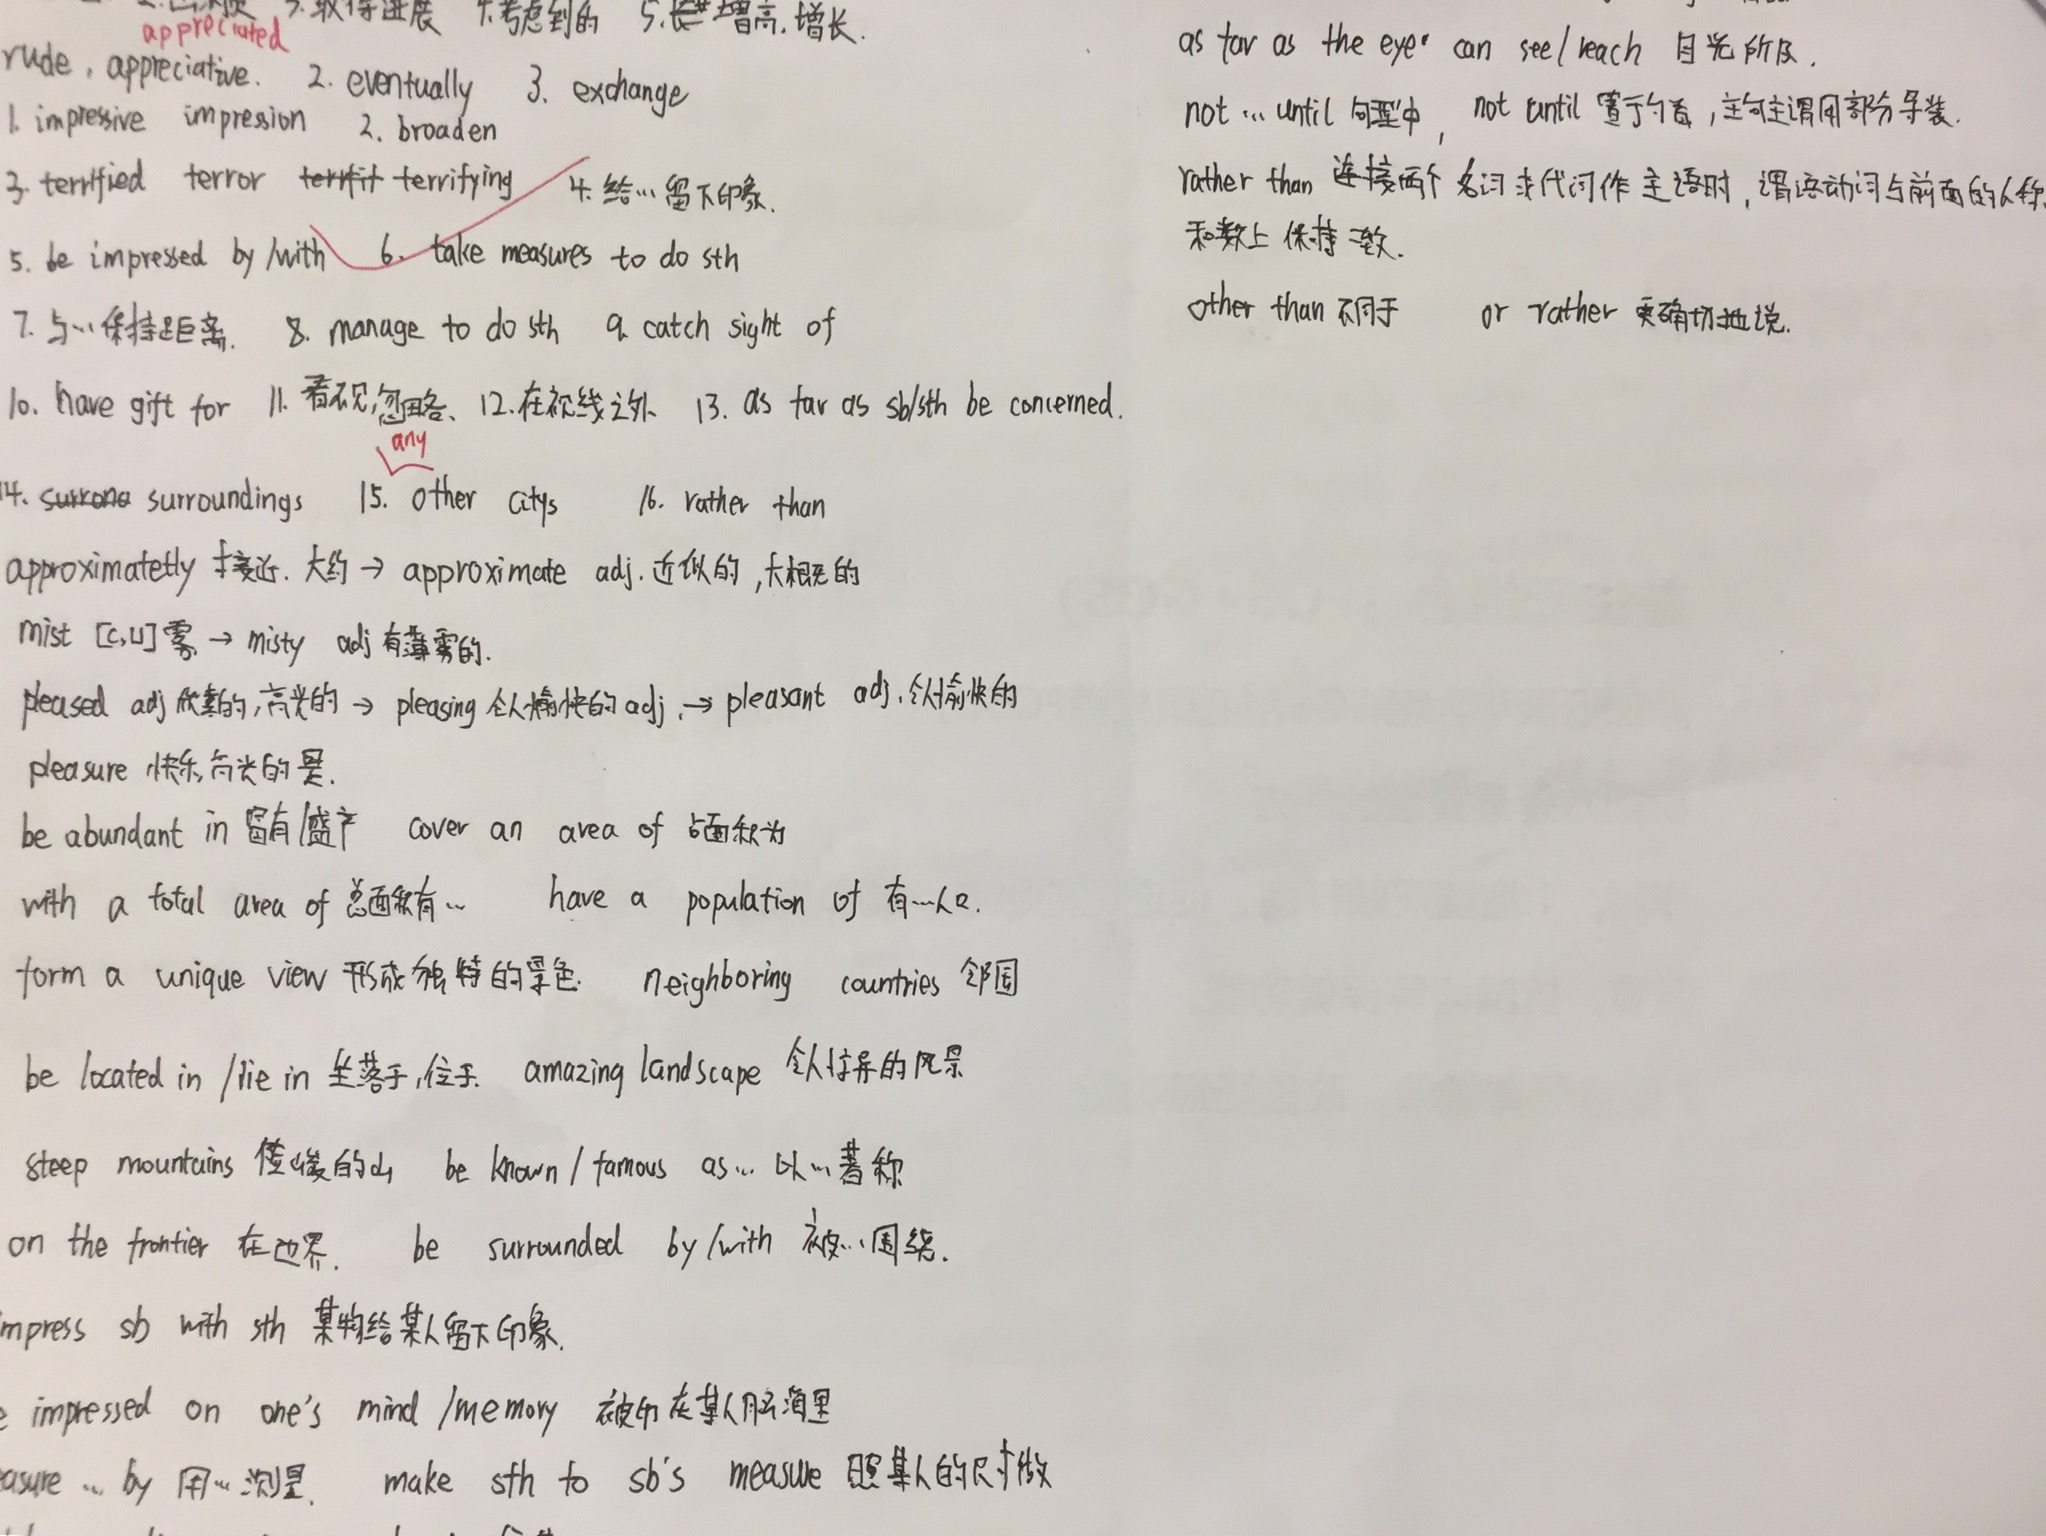 3.取得进展 4.考虑到的 5. 增高.增长.
appreciated
rude, appreciative. 2. eventually 3. exchange
1. impressive impression 2. broaden
3. terrified terror terrifying 4. 给…留下印象.
5. be impressed by/with 6. take measures to do sth
7. 与…保持距离. 8. manage to do sth 9. catch sight of
10. have gift for 11. 看不见,忽略、 12.在视线之外 13. as far as sb/sth be concerned.
any
14. surrong surroundings 15. other citys 16. rather than
approximatetly 接近. 大约 → approximate adj. 近似的,大概的
mist [C,U] 雾 → misty adj 有薄雾的.
pleased adj 欣喜的,高兴的 → pleasing 令人愉快的 adj. → pleasant adj. 令人愉快的
pleasure 快乐,高兴的事.
be abundant in 富有/盛产 cover an area of 占面积为
with a total area of 总面积有… have a population of 有…人口.
form a unique view 形成独特的景色. neighboring countries 邻国
be located in /lie in 坐落于,位于. amazing landscape 令人惊异的风景
steep mountains 陡峻的山 be known / famous as… 以…著称
on the frontier 在边界. be surrounded by/with 被…围绕.
mpress sb with sth 某物给某人留下印象.
e impressed on one's mind /memory 被印在某人脑海里
easure … by 用…测量. make sth to sb's measure 照某人的尺寸做
as far as the eye can see/reach 目光所及.
not … until 句型中, not until 置于句首,主句主谓用部分导装.
rather than 连接两个名词或代词作主语时,谓语动词与前面的人称
和数上保持一致.
other than 不同于 or rather 更确切地说.